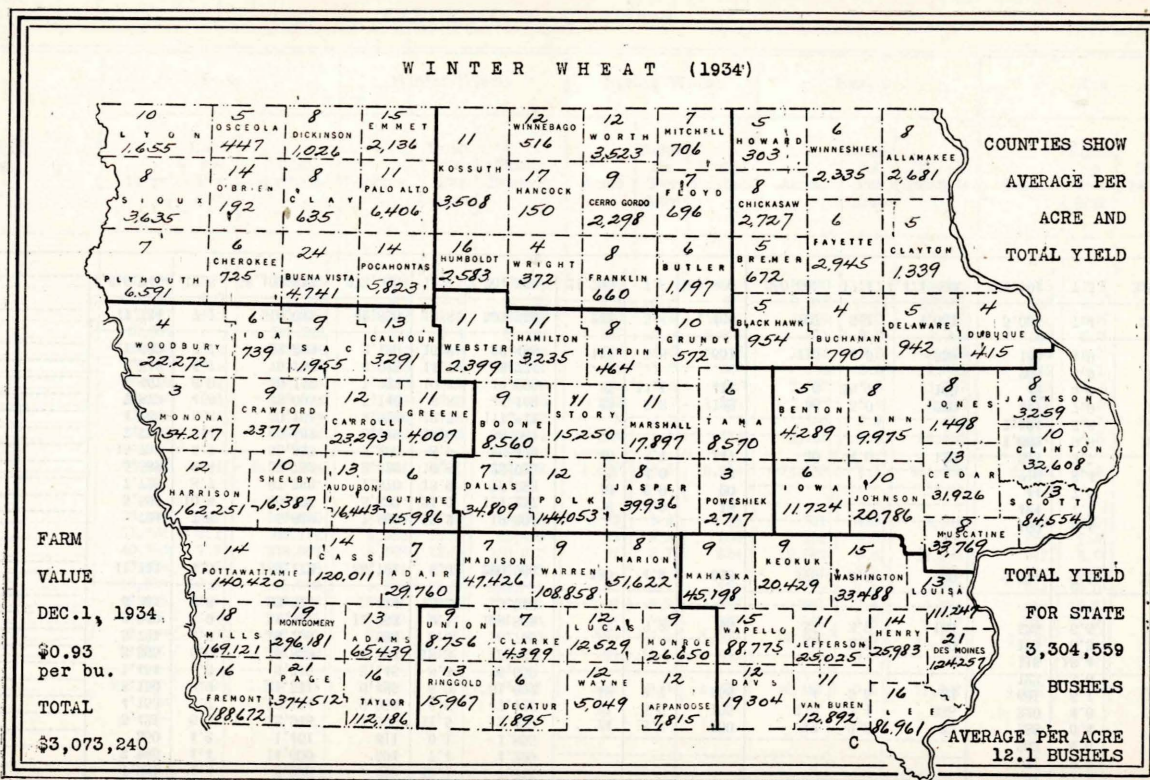 WINTER WHEAT (1934)
COUNTIES SHOW
AVERAGE PER
ACRE AND
TOTAL YIELD
10
LYON
1,655
5
OSCEOLA
447
8
DICKINSON
1,026
15
EMMET
2,136
11
KOSSUTH
3,508
12
WINNEBAGO
516
12
WORTH
3,523
7
MITCHELL
706
5
HOWARD
303
6
WINNESHIEK
2,335
8
ALLAMAKEE
2,681
8
SIOUX
3,635
14
O'BRIEN
192
8
CLAY
635
11
PALO ALTO
6,406
17
HANCOCK
150
9
CERRO GORDO
2,298
7
FLOYD
696
8
CHICKASAW
2,727
6
FAYETTE
2,945
5
CLAYTON
1,339
7
PLYMOUTH
6,591
6
CHEROKEE
725
24
BUENA VISTA
4,741
14
POCAHONTAS
5,823
16
HUMBOLDT
2,583
4
WRIGHT
372
8
FRANKLIN
660
6
BUTLER
1,197
5
BREMER
672
4
WOODBURY
22,272
6
IDA
739
9
SAC
1,955
13
CALHOUN
3,291
11
WEBSTER
2,399
11
HAMILTON
3,235
8
HARDIN
464
10
GRUNDY
572
5
BLACK HAWK
954
4
BUCHANAN
790
5
DELAWARE
942
4
DUBUQUE
415
3
MONONA
54,217
9
CRAWFORD
23,717
12
CARROLL
23,293
11
GREENE
4,007
9
BOONE
8,560
11
STORY
15,250
11
MARSHALL
17,897
6
TAMA
8,570
5
BENTON
4,289
8
LINN
9,975
8
JONES
1,498
8
JACKSON
3,259
10
CLINTON
32,608
12
HARRISON
162,251
10
SHELBY
16,387
13
AUDUBON
16,443
6
GUTHRIE
15,986
7
DALLAS
34,809
12
POLK
144,053
8
JASPER
39,936
3
POWESHIEK
2,717
6
IOWA
11,724
10
JOHNSON
20,786
13
CEDAR
31,926
13
SCOTT
84,554
8
MUSCATINE
33,762
14
POTTAWATTAMIE
140,420
14
CASS
120,011
7
ADAIR
29,760
7
MADISON
47,426
9
WARREN
108,858
8
MARION
51,622
9
MAHASKA
45,198
9
KEOKUK
20,429
15
WASHINGTON
33,488
13
LOUISA
111,247
18
MILLS
169,121
19
MONTGOMERY
296,181
13
ADAMS
65,439
9
UNION
8,756
7
CLARKE
4,399
12
LUCAS
12,529
9
MONROE
26,650
15
WAPELLO
88,775
11
JEFFERSON
25,025
14
HENRY
25,983
21
DES MOINES
124,257
16
FREMONT
188,672
21
PAGE
374,512
16
TAYLOR
112,186
13
RINGGOLD
15,967
6
DECATUR
1,895
12
WAYNE
5,049
12
APPANOOSE
7,815
12
DAVIS
19304
11
VAN BUREN
12,892
16
LEE
86,961
C
FARM
VALUE
DEC.1, 1934
$0.93
per bu.
TOTAL
$3,073,240
TOTAL YIELD
FOR STATE
3,304,559
BUSHELS
AVERAGE PER ACRE
12.1 BUSHELS